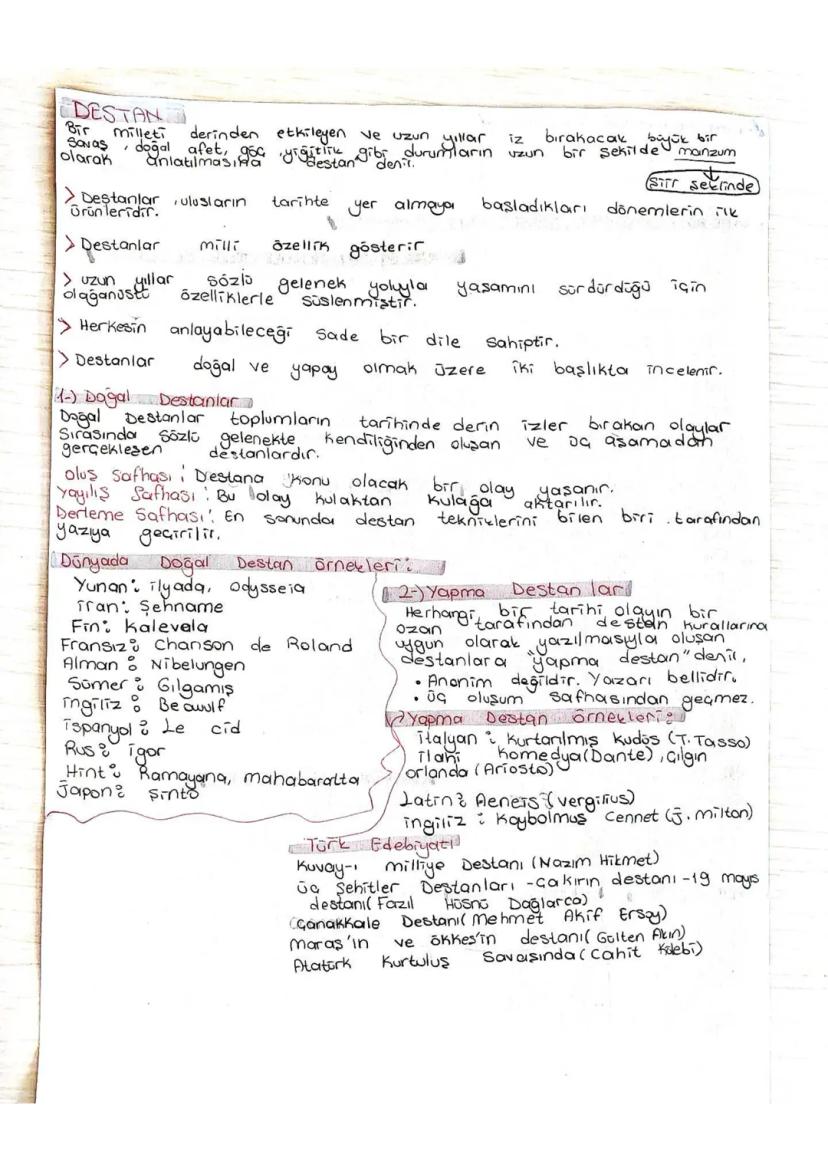 DESTAN
Bir milleti derinden etkileyen ve uzun yıllar iz bırakacak büyük bir
savaş, doğal afet, göç, yiğitlik gibi durumların uzun bir şekilde manzum
olarak anlatılmasına destan denir.
Şiir şeklinde
> Destanlar, ulusların tarihte yer almaya başladıkları dönemlerin ilk
ürünleridir.
> Destanlar milli özellik gösterir
> uzun yıllar sözlü gelenek yoluyla yaşamını sürdürdüğü için
olağanüstü özelliklerle süslenmiştir.
> Herkesin anlayabileceği sade bir dile sahiptir.
> Destanlar doğal ve yapay olmak üzere iki başlıkta incelenir.
1-) Doğal Destanlar
Doğal Destanlar toplumların tarihinde derin izler bırakan olaylar
sırasında sözlü gelenekte kendiliğinden oluşan ve üç aşamadan
gerçekleşen destanlardır.
Oluş Safhası: Destana konu olacak bir olay yaşanır.
Yayılış Safhası: Bu olay kulaktan kulağa aktarılır.
Derleme Safhası: En sonunda destan tekniklerini bilen biri tarafından
yazıya geçirilir.
Dünyada Doğal Destan örnekleri:
Yunan: ilyada, odysseia
iran: Şehname
Fin: Kalevela
Fransız: Chanson de Roland
Alman: Nibelungen
Sümer: Gılgamış
ingiliz: Beawulf
ispanyol: Le cid
Rus: igor
Hint: Ramayana, mahabaratta
Japon: Şinto
2-) Yapma Destanlar
Herhangi bir tarihi olayın bir
ozan tarafından destan kurallarına
uygun olarak yazılmasıyla oluşan
destanlara "yapma destan" denil.
• Anonim değildir. Yazarı bellidir.
• üç oluşum safhasından geçmez.
Yapma Destan örnekleri:
italyan: Kurtarılmış Kudüs (T. Tasso)
ilahi Komedya (Dante), Çılgın
orlando (Ariosto)
Latin: Aeneis (vergilius)
ingiliz: Kaybolmuş Cennet (j. milton)
Türk Edebiyatı
Kuvay-ı milliye Destanı (Nazım Hikmet)
üç Şehitler Destanları - Çakırın destanı - 19 mayıs
destanı (Fazıl Hüsnü Dağlarca)
Çanakkale Destanı (Mehmet Akif Ersoy)
maraş'ın ve ökkeş'in destanı (Gülten Akın)
Atatürk Kurtuluş Savaşında (Cahit Külebi)